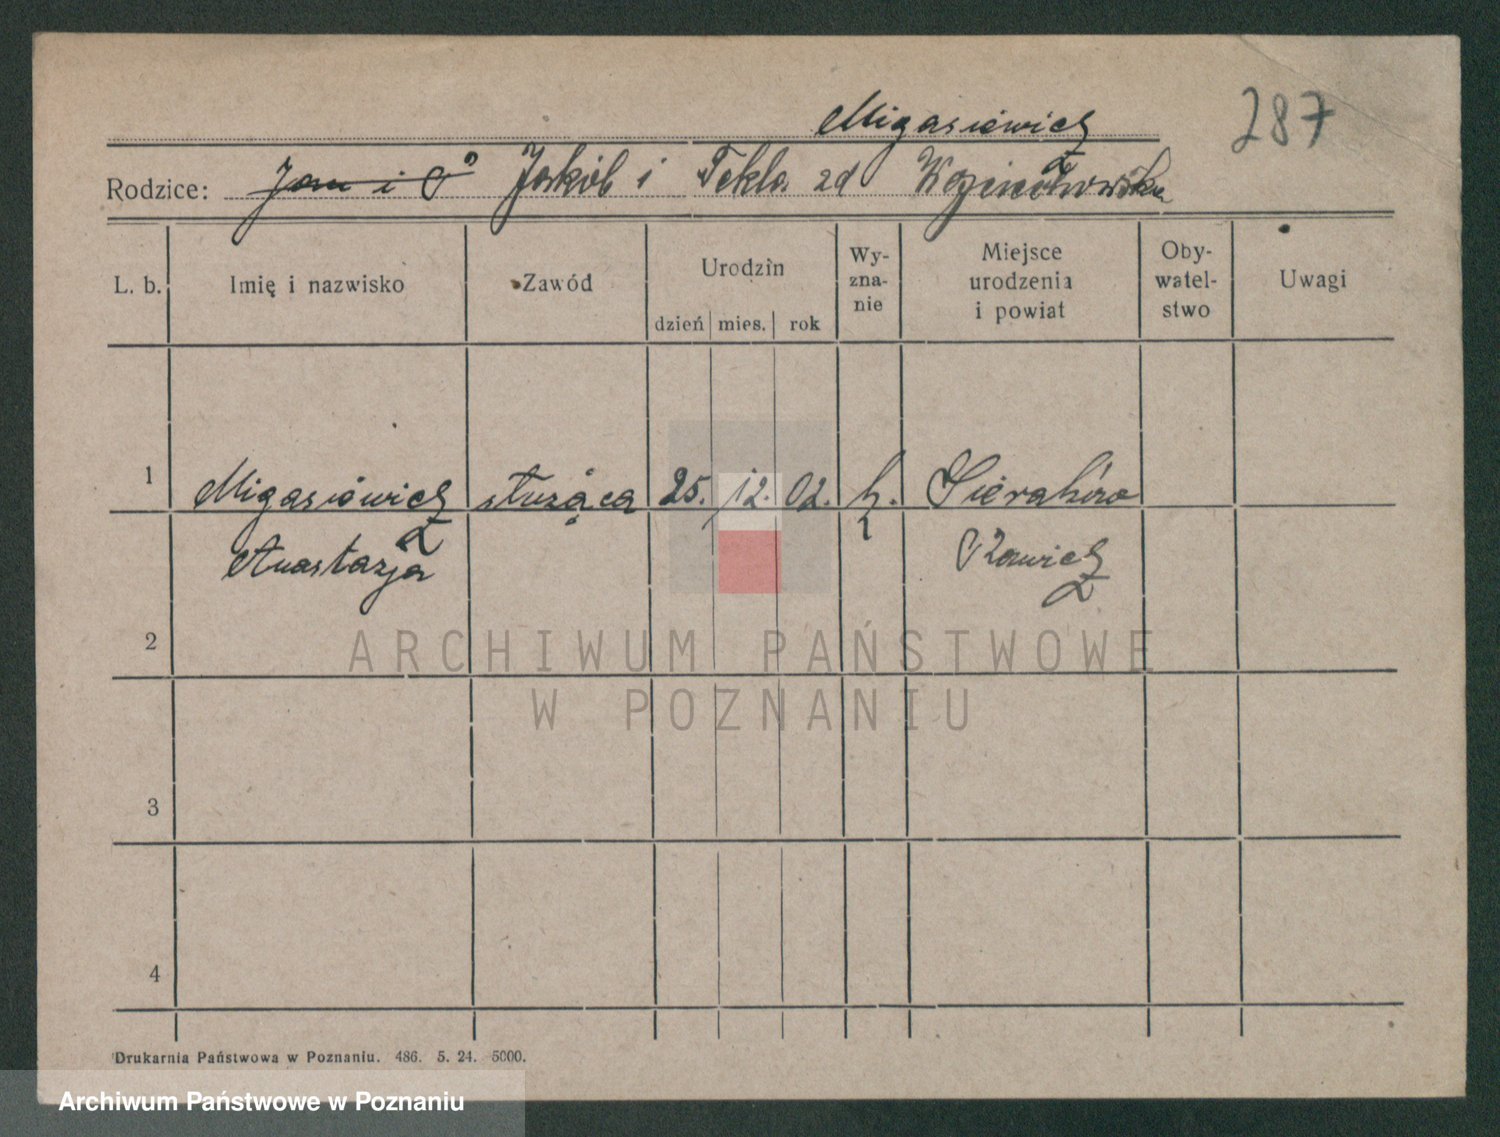 Migasiewicz
287
Rodzice: Jan i Jakób i Tekla zd
L. b. Imię i nazwisko Zawód Urodzin dzień mies. rok Wy-zna-nie Miejsce urodzenia i powiat Oby-watel-stwo Uwagi
1 Migasiewicz służąca 25. 12. 02. k. Sierakowo
Anastazja Rawicz
2
ARCHIWUM PAŃSTWOWE
W POZNANIU
3
4
Drukarnia Państwowa w Poznaniu. 486. 5. 24. 5000.
Archiwum Państwowe w Poznaniu